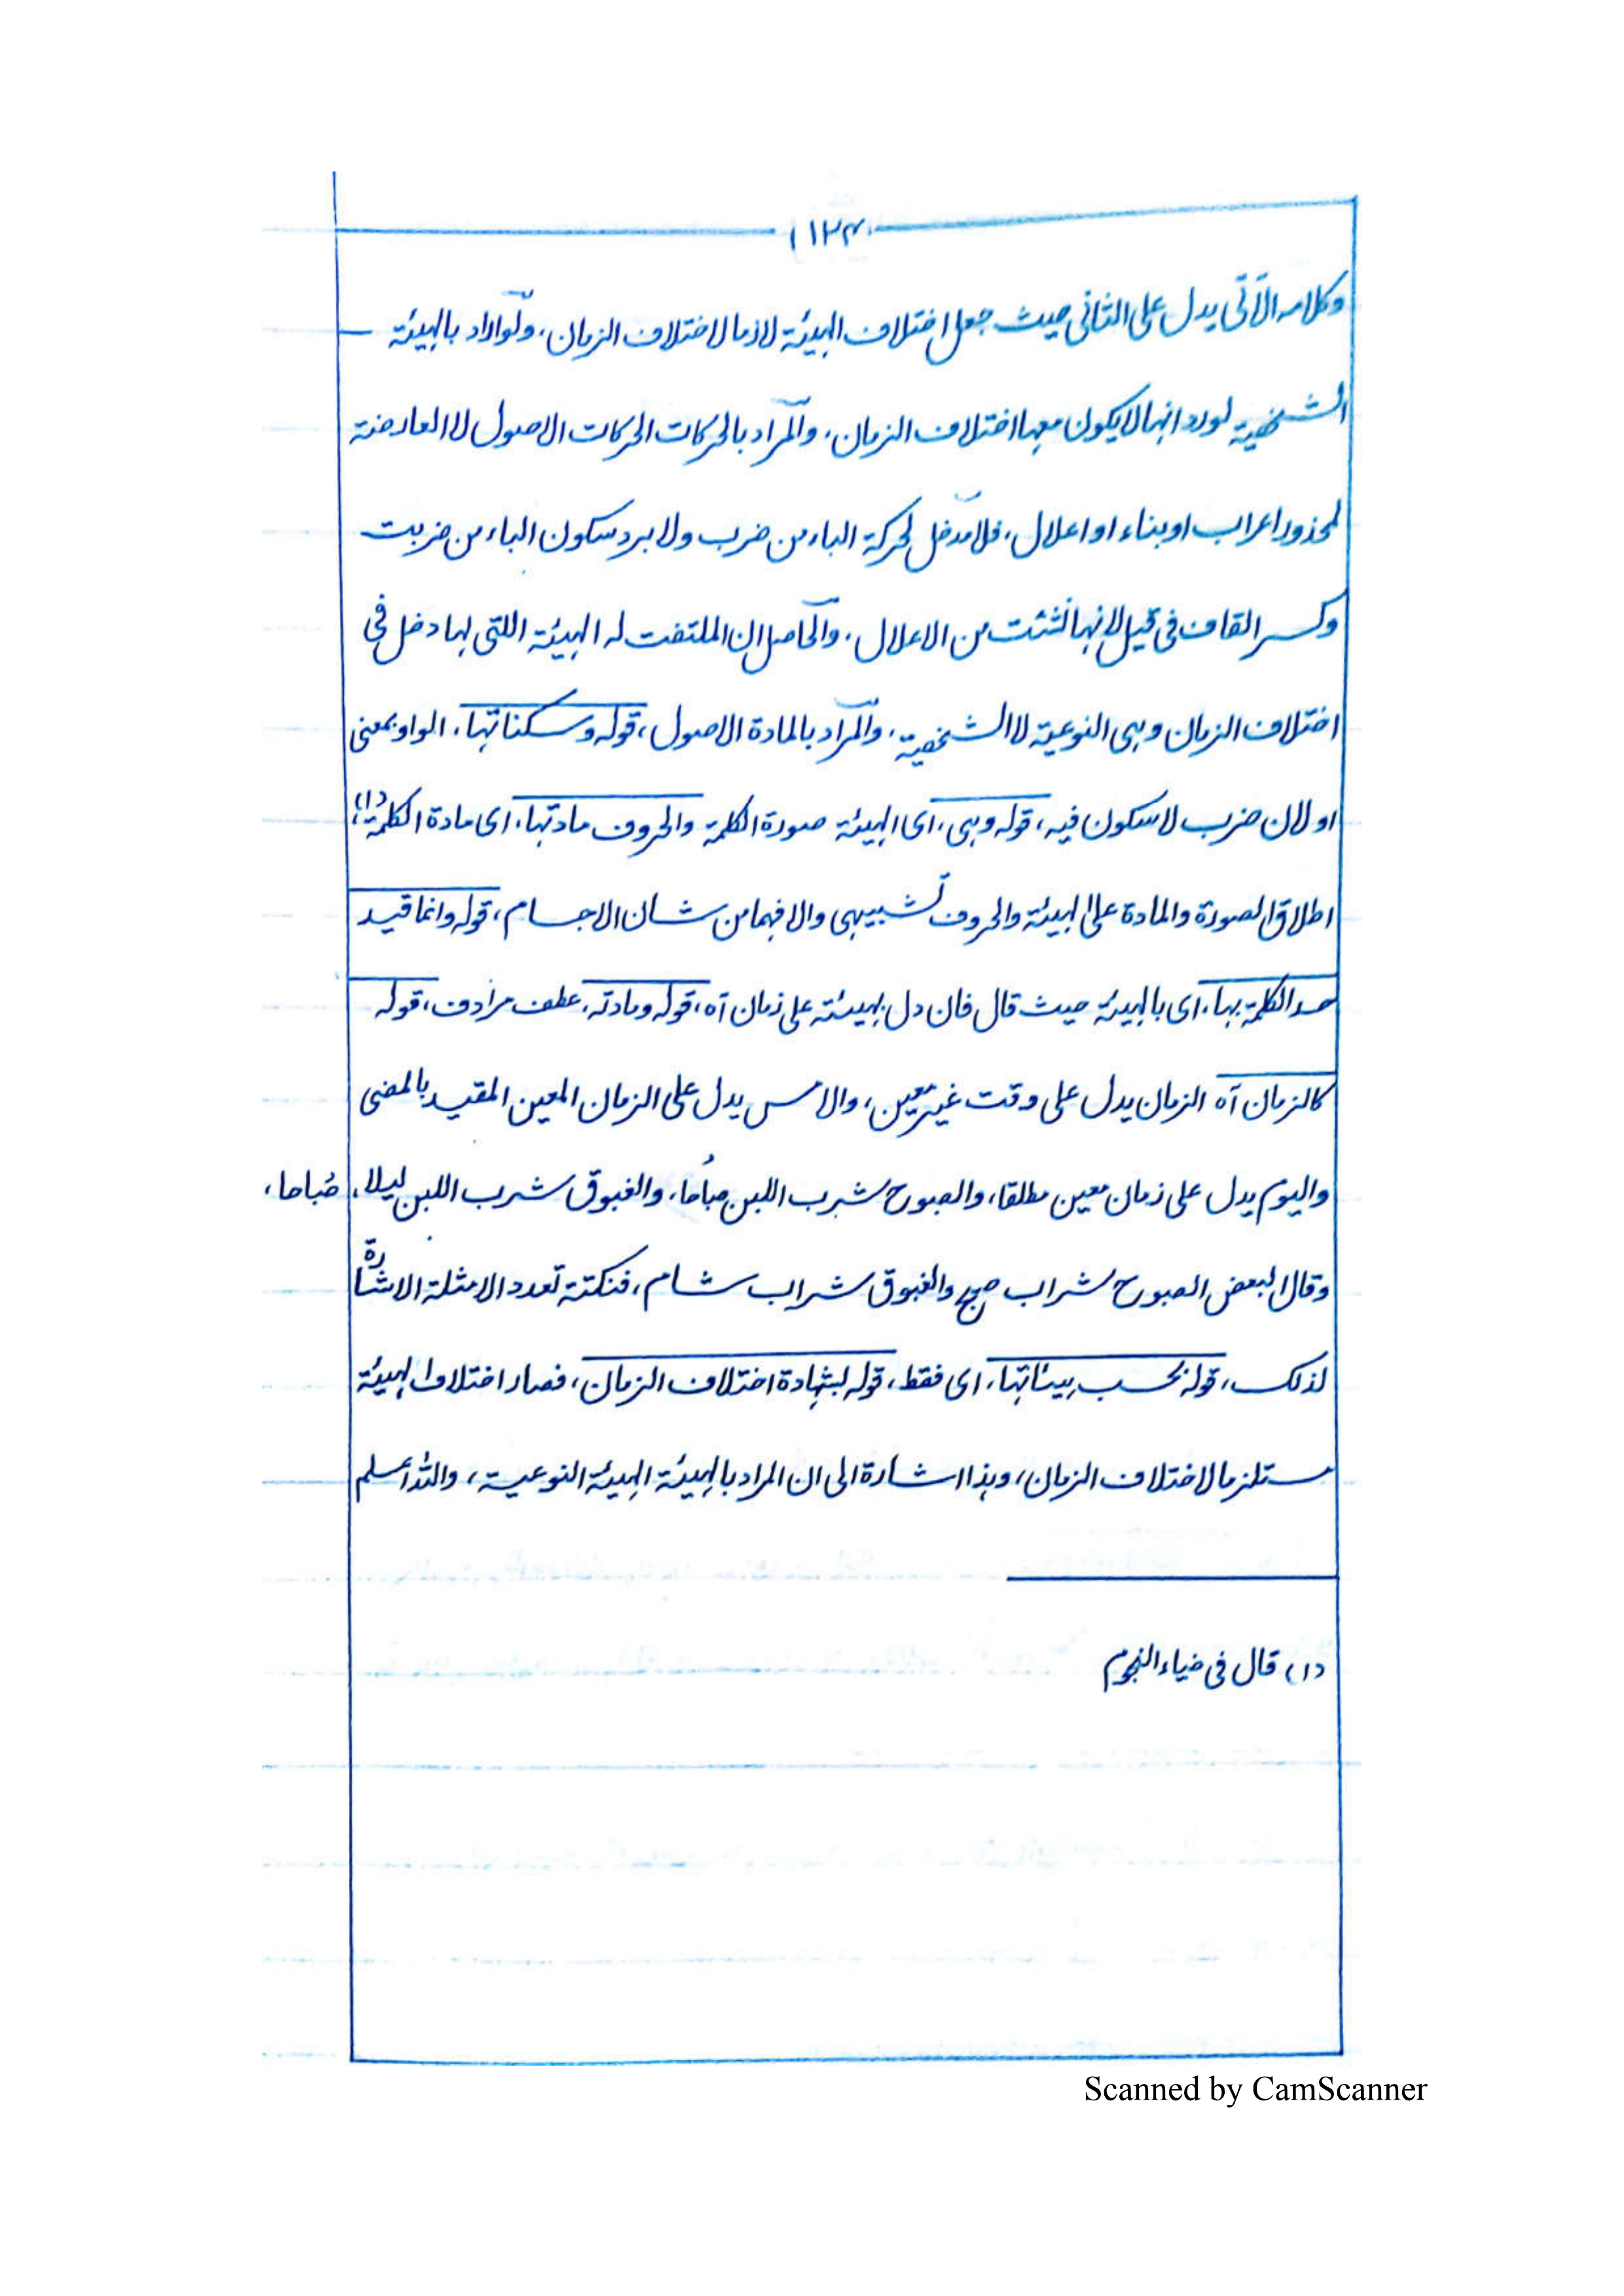 (١٢٣)
وكلامه الآتى يدل على الثانى حيث جعل اختلاف الهيئة لازما لاختلاف الزمان، ولو اراد بالهيئة
الشخصية لورد انهما لا يكون معها اختلاف الزمان، والمراد بالحركات الحركات الاصول لا العارضة
لمحذور اعراب او بناء او اعلال، فلا مدخل لحركة الباء من ضرب ولا يرد سكون الباء من ضربت
وكسر القاف فى قيل لانها نشئت من الاعلال، والحاصل ان الملتفت له الهيئة اللتى لها دخل فى
اختلاف الزمان وهى النوعية لا الشخصية، والمراد بالمادة الاصول، قوله وسكناتها، الواو بمعنى
او لان ضرب لا سكون فيه، قوله وهى، اى الهيئة صورة الكلمة والحروف مادتها، اى مادة الكلمة، (١)
اطلاق الصورة والمادة على الهيئة والحروف تشبيهى والا فهما من شان الاجسام، قوله وانما قيد
حد الكلمة بها، اى بالهيئة حيث قال فان دل بهيئته على زمان آه، قوله ومادته، عطف مرادف، قوله
كالزمان آه الزمان يدل على وقت غير معين، والامس يدل على الزمان المعين المقيد بالمضى
واليوم يدل على زمان معين مطلقا، والصبوح شرب اللبن صباحا، والغبوق شرب اللبن ليلا، صُباحا،
وقال البعض الصبوح شراب صبح والغبوق شراب شام، فنكتة تعدد الامثلة الاشارة
لذلك، قوله بحسب هيئاتها، اى فقط، قوله بشهادة اختلاف الزمان، فصار اختلاف الهيئة
مستلزما لاختلاف الزمان، وهذا اشارة الى ان المراد بالهيئة الهيئة النوعية، والله اعلم
(١) قال فى ضياء النجوم
Scanned by CamScanner